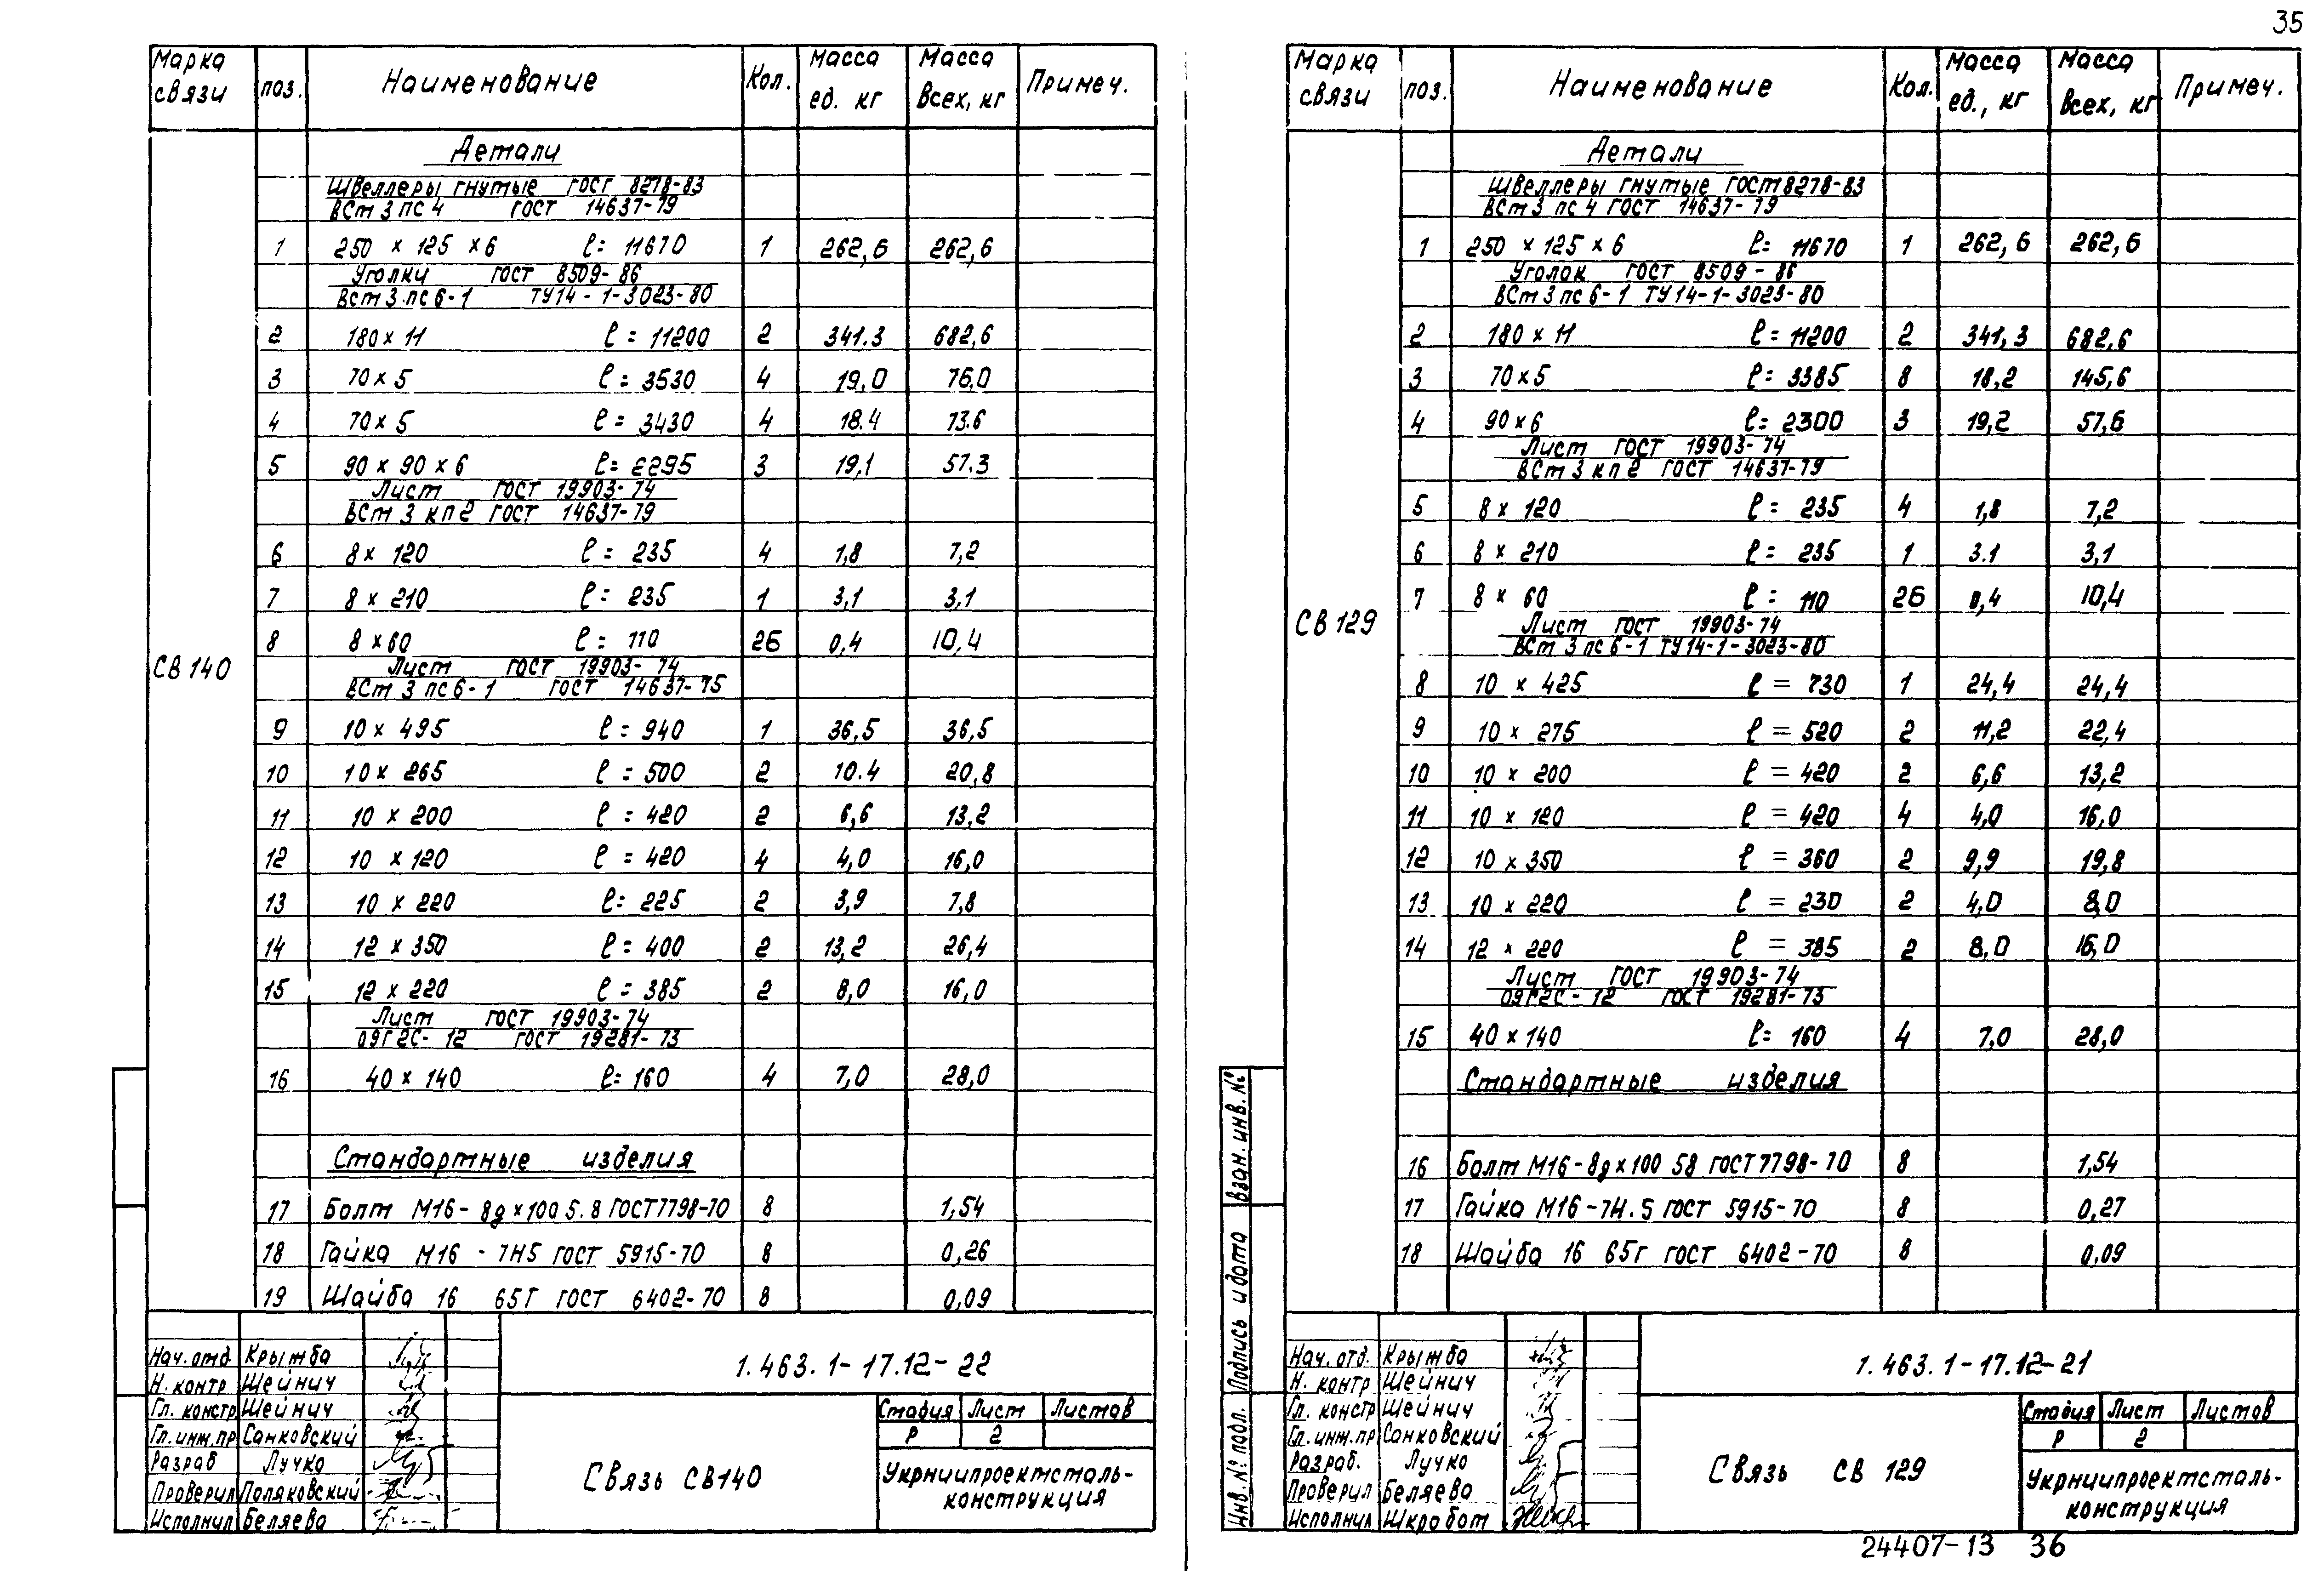 35
Марка связи поз. Наименование Кол. Масса ед. кг Масса всех, кг Примеч.
Детали
Швеллеры гнутые ГОСТ 8278-83
ВСт 3 пс 4 ГОСТ 14637-79
1 250 × 125 × 6 ℓ= 11670 1 262,6 262,6
Уголки ГОСТ 8509-86
ВСт 3 пс 6-1 ТУ14-1-3023-80
2 180 × 11 ℓ = 11200 2 341.3 682,6
3 70 × 5 ℓ = 3530 4 19,0 76,0
4 70 × 5 ℓ = 3430 4 18.4 73.6
5 90 × 90 × 6 ℓ= 2295 3 19.1 57.3
Лист ГОСТ 19903-74
ВСт 3 кп2 ГОСТ 14637-79
6 8 × 120 ℓ = 235 4 1,8 7,2
7 8 × 210 ℓ = 235 1 3,1 3,1
8 8 × 60 ℓ = 110 26 0,4 10,4
СВ 140
Лист ГОСТ 19903-74
ВСт 3 пс 6-1 ГОСТ 14637-75
9 10 × 495 ℓ = 940 1 36,5 36,5
10 10 × 265 ℓ = 500 2 10.4 20,8
11 10 × 200 ℓ = 420 2 6,6 13,2
12 10 × 120 ℓ = 420 4 4,0 16,0
13 10 × 220 ℓ= 225 2 3,9 7,8
14 12 × 350 ℓ = 400 2 13,2 26,4
15 12 × 220 ℓ = 385 2 8,0 16,0
Лист ГОСТ 19903-74
09Г2С-12 ГОСТ 19281-73
16 40 × 140 ℓ= 160 4 7,0 28,0
Стандартные изделия
17 Болт М16-8g×100 5.8 ГОСТ7798-70 8 1,54
18 Гайка М16 - 7Н5 ГОСТ 5915-70 8 0,26
19 Шайба 16 65Г ГОСТ 6402-70 8 0,09
Нач. отд Крымба
Н. контр Шейнич
Гл. констр. Шейнич
Гл. инж. пр Санковский
Разраб Лучко
Проверил Поляковский
Исполнил Беляева
1.463.1-17.12-22
Связь СВ140
Стадия Лист Листов
Р 2
Укрниипроектсталь-
конструкция
Марка связи поз. Наименование Кол. Масса ед., кг Масса всех, кг Примеч.
Детали
Швеллеры гнутые ГОСТ 8278-83
ВСт 3 пс 4 ГОСТ 14637-79
1 250 × 125 × 6 ℓ= 11670 1 262,6 262,6
Уголок ГОСТ 8509-86
ВСт 3 пс 6-1 ТУ14-1-3023-80
2 180 × 11 ℓ = 11200 2 341,3 682,6
3 70 × 5 ℓ= 3385 8 18,2 145,6
4 90 × 6 ℓ= 2300 3 19,2 57,6
Лист ГОСТ 19903-74
ВСт 3 кп 2 ГОСТ 14637-79
5 8 × 120 ℓ = 235 4 1,8 7,2
6 8 × 210 ℓ = 235 1 3.1 3,1
7 8 × 60 ℓ = 110 26 0,4 10,4
СВ 129
Лист ГОСТ 19903-74
ВСт 3 пс 6-1 ТУ14-1-3023-80
8 10 × 425 ℓ = 730 1 24,4 24,4
9 10 × 275 ℓ = 520 2 11,2 22,4
10 10 × 200 ℓ = 420 2 6,6 13,2
11 10 × 120 ℓ = 420 4 4,0 16,0
12 10 × 350 ℓ = 360 2 9,9 19,8
13 10 × 220 ℓ = 230 2 4,0 8,0
14 12 × 220 ℓ = 385 2 8,0 16,0
Лист ГОСТ 19903-74
09Г2С-12 ГОСТ 19281-73
15 40 × 140 ℓ= 160 4 7,0 28,0
Стандартные изделия
16 Болт М16-8g×100 58 ГОСТ7798-70 8 1,54
17 Гайка М16-7Н.5 ГОСТ 5915-70 8 0,27
18 Шайба 16 65Г ГОСТ 6402-70 8 0,09
Инв. № подл. Подпись и дата Взан. инв. №
Нач. отд. Крымба
Н. контр Шейнич
Гл. констр Шейнич
Гл. инж. пр Санковский
Разраб. Лучко
Проверил Беляева
Исполнил Шкробот
1.463.1-17.12-21
Связь СВ 129
Стадия Лист Листов
Р 2
Укрниипроектсталь-
конструкция
24407-13 36